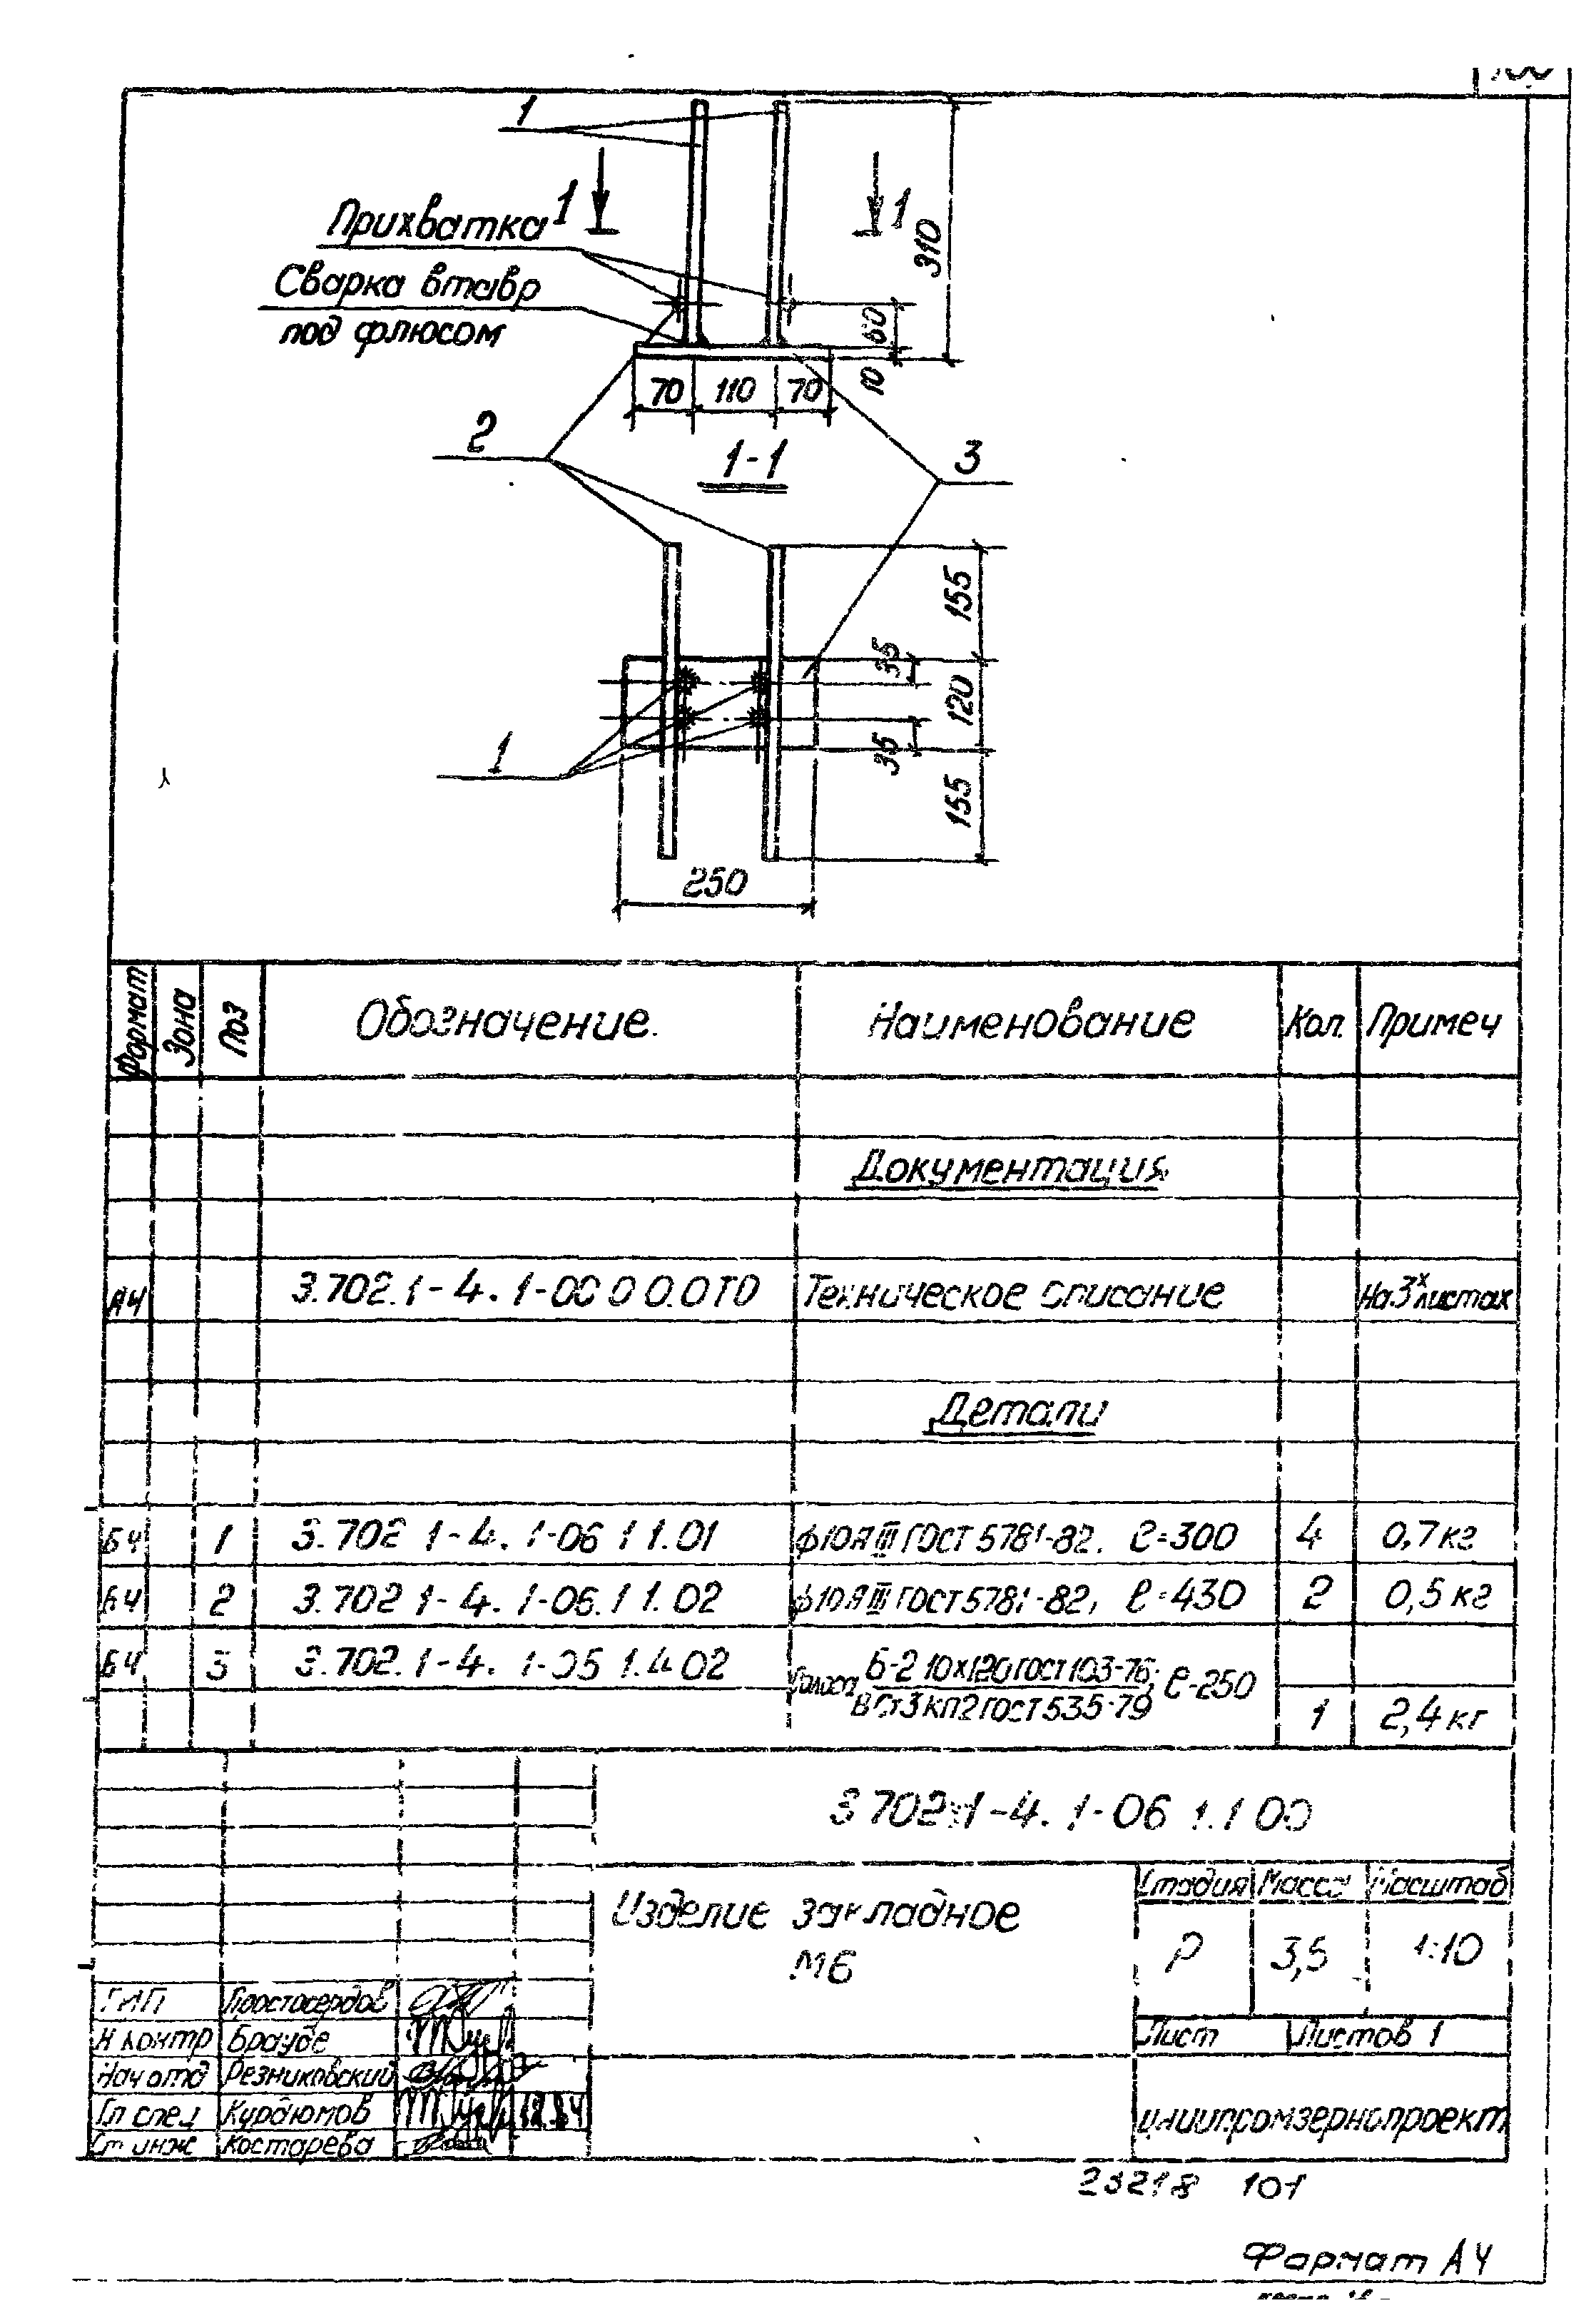 1
1 1
Прихватка
Сварка втавр
под флюсом
310
60
10
70 110 70
2
1-1
3
155
35
120
35
155
1
250
Формат Зона Поз Обозначение. Наименование Кол. Примеч
Документация
А4 3.702.1-4.1-06 0 0 0.0ТО Техническое описание На 3х листах
Детали
БЧ 1 3.702 1-4. 1-06 1 1.01 ф10АIII ГОСТ 5781-82. ℓ=300 4 0,7 кг
БЧ 2 3.702 1-4. 1-06.1 1.02 ф10АIII ГОСТ 5781-82, ℓ=430 2 0,5 кг
БЧ 3 3.702.1-4. 1-05 1.4 02 Полоса Б-2 10х120 ГОСТ 103-76; ℓ-250
В Ст3 кп2 ГОСТ 535-79 1 2,4 кг
3 702.1-4. 1-06 1.1 00
Изделие закладное
М6
Стадия Масса Масштаб
Р 3,5 1:10
Лист Листов 1
ГИП Простосердов
Н контр Брауде
Нач отд Резниковский
Гл спец Курдюмов
Ст инж Костарева
ЦНИИпромзернопроект
23218 101
Формат А4